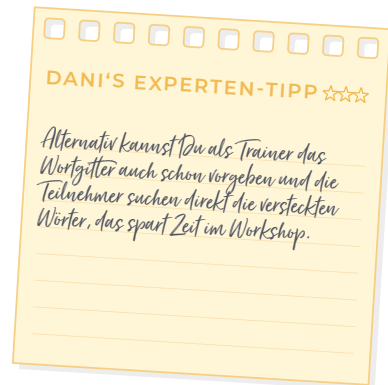 DANI'S EXPERTEN-TIPP
Alternativ kannst Du als Trainer das
Wortgitter auch schon vorgeben und die
Teilnehmer suchen direkt die versteckten
Wörter, das spart Zeit im Workshop.